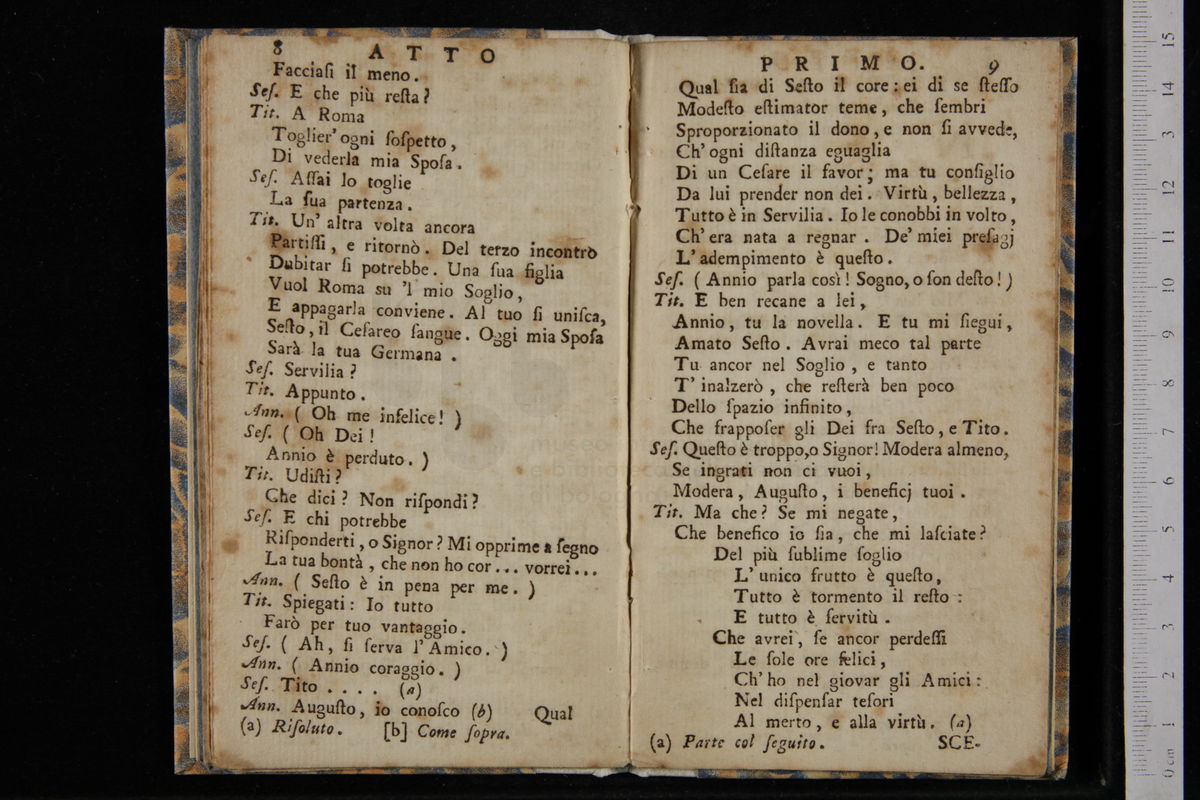 8 ATTO
Facciaſi il meno.
Seſ. E che più reſta?
Tit. A Roma
Toglier' ogni ſoſpetto,
Di vederla mia Spoſa.
Seſ. Aſſai lo toglie
La ſua partenza.
Tit. Un' altra volta ancora
Partiſſi, e ritornò. Del terzo incontrò
Dubitar ſi potrebbe. Una ſua figlia
Vuol Roma su 'l mio Soglio,
E appagarla conviene. Al tuo ſi uniſca,
Seſto, il Ceſareo ſangue. Oggi mia Spoſa
Sarà la tua Germana.
Seſ. Servilia?
Tit. Appunto.
Ann. ( Oh me infelice! )
Seſ. ( Oh Dei!
Annio è perduto. )
Tit. Udiſti?
Che dici? Non riſpondi?
Seſ. E chi potrebbe
Riſponderti, o Signor? Mi opprime a ſegno
La tua bontà, che non ho cor... vorrei...
Ann. ( Seſto è in pena per me. )
Tit. Spiegati: Io tutto
Farò per tuo vantaggio.
Seſ. ( Ah, ſi ſerva l'Amico. )
Ann. ( Annio coraggio. )
Seſ. Tito .... (a)
Ann. Auguſto, io conoſco (b) Qual
(a) Riſoluto. [b] Come ſopra.
PRIMO. 9
Qual ſia di Seſto il core: ei di se ſteſſo
Modeſto eſtimator teme, che ſembri
Sproporzionato il dono, e non ſi avvede,
Ch' ogni diſtanza eguaglia
Di un Ceſare il favor; ma tu conſiglio
Da lui prender non dei. Virtù, bellezza,
Tutto è in Servilia. Io le conobbi in volto,
Ch' era nata a regnar. De' miei preſagj
L' adempimento è queſto.
Seſ. ( Annio parla così! Sogno, o ſon deſto! )
Tit. E ben recane a lei,
Annio, tu la novella. E tu mi ſiegui,
Amato Seſto. Avrai meco tal parte
Tu ancor nel Soglio, e tanto
T' inalzerò, che reſterà ben poco
Dello ſpazio infinito,
Che frappoſer gli Dei fra Seſto, e Tito.
Seſ. Queſto è troppo, o Signor! Modera almeno,
Se ingrati non ci vuoi,
Modera, Auguſto, i beneficj tuoi.
Tit. Ma che? Se mi negate,
Che benefico io ſia, che mi laſciate?
Del più ſublime ſoglio
L' unico frutto è queſto,
Tutto è tormento il reſto:
E tutto è ſervitù.
Che avrei, ſe ancor perdeſſi
Le ſole ore felici,
Ch' ho nel giovar gli Amici:
Nel diſpenſar teſori
Al merto, e alla virtù. (a)
(a) Parte col ſeguito. SCE-
museo
e biblioteca
di bologna
0 cm 1 2 3 4 5 6 7 8 9 10 11 12 13 14 15